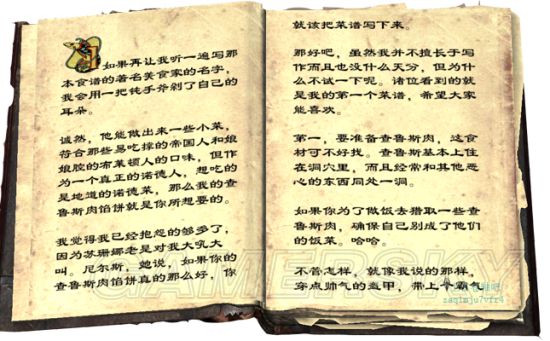 如果再让我听一遍写那
本食谱的著名美食家的名字，
我会用一把钝手斧剁了自己的
耳朵。
诚然，他能做出来一些小菜，
符合那些易吃撑的帝国人和娘
娘腔的布莱顿人的口味，但作
为一个真正的诺德人，想吃的
是地道的诺德菜，那么我的查
鲁斯肉馅饼就是你所想要的。
我觉得我已经抱怨的够多了，
因为苏珊娜老是对我大吼大
叫。尼尔斯，她说，如果你的
查鲁斯肉馅饼真的那么好，你
就该把菜谱写下来。
那好吧，虽然我并不擅长于写
作而且也没什么天分，但为什
么不试一下呢。诸位看到的就
是我的第一个菜谱，希望大家
能喜欢。
第一，要准备查鲁斯肉，这食
材可不好找。查鲁斯基本上住
在洞穴里，而且经常和其他恶
心的东西同处一洞。
如果你为了做饭去猎取一些查
鲁斯肉，确保自己别成了他们
的饭菜。哈哈。
不管怎样，就像我说的那样，
穿点帅气的盔甲，带上个霸气
GAMERSKY
zaqimju7vfr4